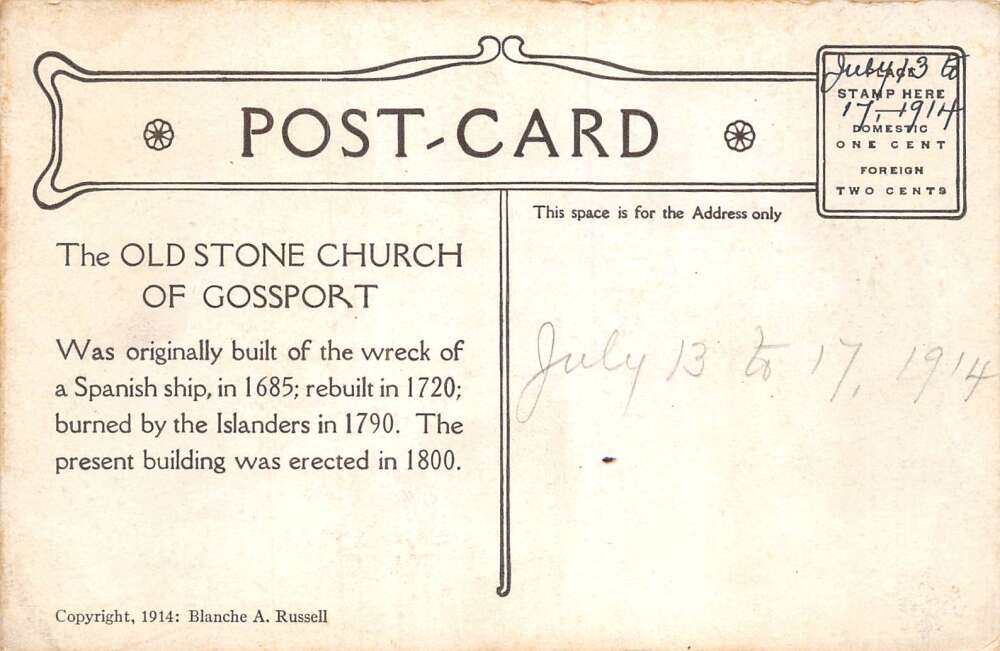 POST-CARD
July 13 to
PLACE
STAMP HERE
17, 1914
DOMESTIC
ONE CENT
FOREIGN
TWO CENTS
This space is for the Address only
The OLD STONE CHURCH
OF GOSSPORT
Was originally built of the wreck of
a Spanish ship, in 1685; rebuilt in 1720;
burned by the Islanders in 1790. The
present building was erected in 1800.
July 13 to 17, 1914
Copyright, 1914: Blanche A. Russell